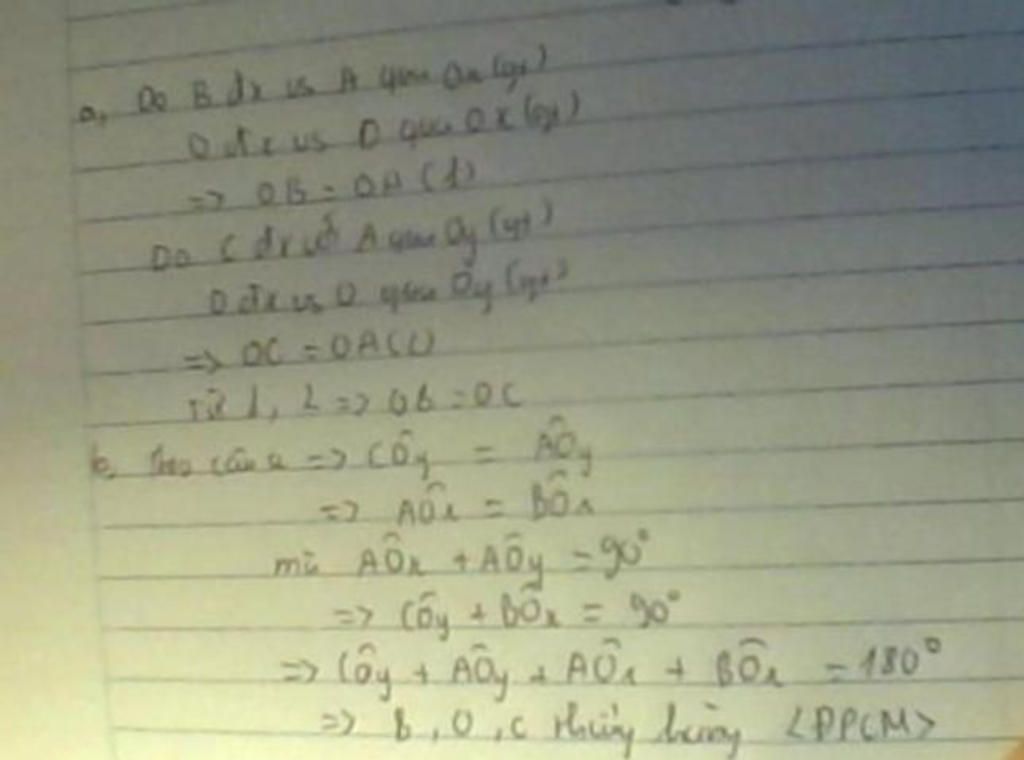 a, Do B đx vs A qua Ox (gt)
O đx vs O qua Ox (gt)
=> OB = OA (1)
Do C đx với A qua Oy (gt)
O đx vs O qua Oy (gt)
=> OC = OA (2)
Từ 1, 2 => OB = OC
b, Theo câu a => CÔy = AÔy
=> AÔx = BÔx
mà AÔx + AÔy = 90°
=> CÔy + BÔx = 90°
=> CÔy + AÔy + AÔx + BÔx = 180°
=> B, O, C thẳng hàng <ĐPCM>